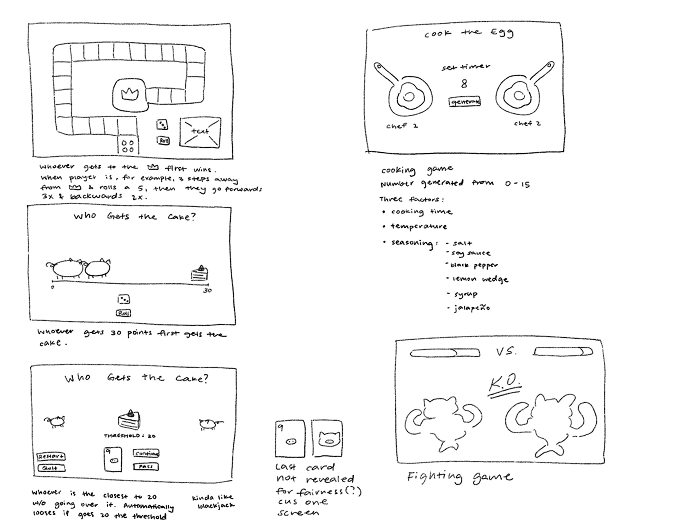 text
Roll
whoever gets to the first wins.
When player is, for example, 3 steps away
from & rolls a 5, then they go forwards
3x & backwards 2x.
Who Gets the Cake?
0
30
Roll
Whoever gets 30 points first gets the
cake.
Who Gets the Cake?
THRESHOLD: 20
Restart
Quit
9
Continue
Pass
Whoever is the closest to 20
w/o going over it. Automatically
looses if goes 20 the threshold
kinda like
blackjack
9
Last card
not revealed
for fairness(?)
cus one
screen
cook the Egg
set timer
8
generate
chef 2
chef 2
cooking game
Number generated from 0-15
Three factors:
• cooking time
• temperature
• seasoning: - salt
- soy sauce
- black pepper
- lemon wedge
- syrup
- jalapeño
VS.
K.O.
Fighting game